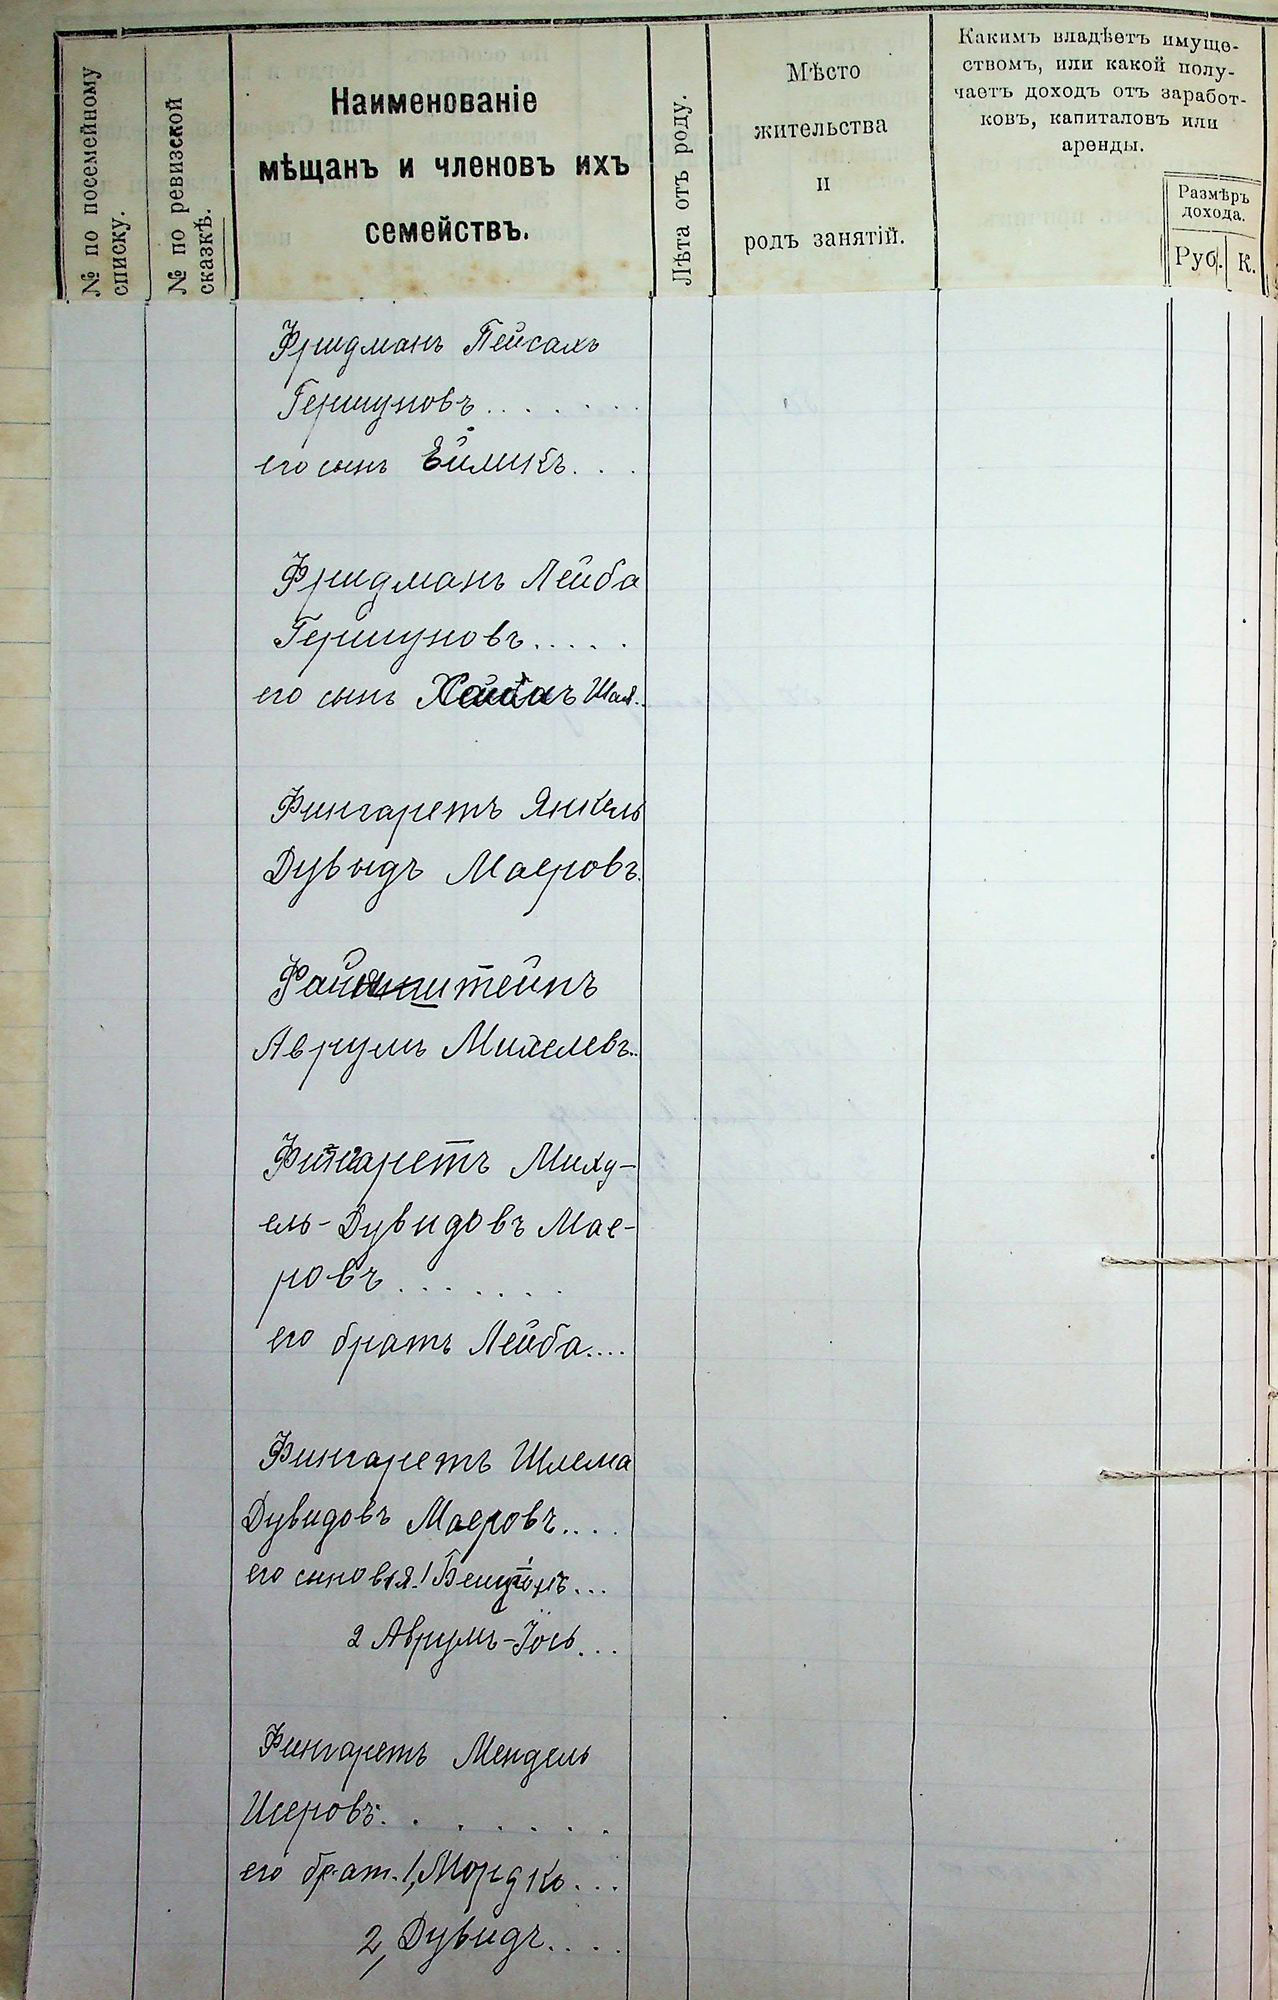 № по посемейному
списку.
№ по ревизской
сказкѣ.
Наименованіе
мѣщанъ и членовъ ихъ
семействъ.
Лѣта отъ роду.
Мѣсто
жительства
и
родъ занятій.
Какимъ владѣетъ имуще-
ствомъ, или какой полу-
чаетъ доходъ отъ заработ-
ковъ, капиталовъ или
аренды.
Размѣръ
дохода.
Руб. К.
Фридманъ Пейсахъ
Гершуновъ.......
его сынъ Ейликъ...
Фридманъ Лейба
Гершуновъ.....
его сынъ Шая..
Фингаретъ Янкель
Дувыдъ Маеровъ.
Файнштейнъ
Аврумъ Михелевъ..
Фингаретъ Миху-
ель-Дувидовъ Мае-
ровъ.......
его братъ Лейба....
Фингаретъ Шлема
Дувидовъ Маеровъ....
его сыновья: 1 ...
2 Аврумъ-Іось...
Фингаретъ Мендель
Исеровъ........
его брат. 1, Мордко...
2, Дувидъ....